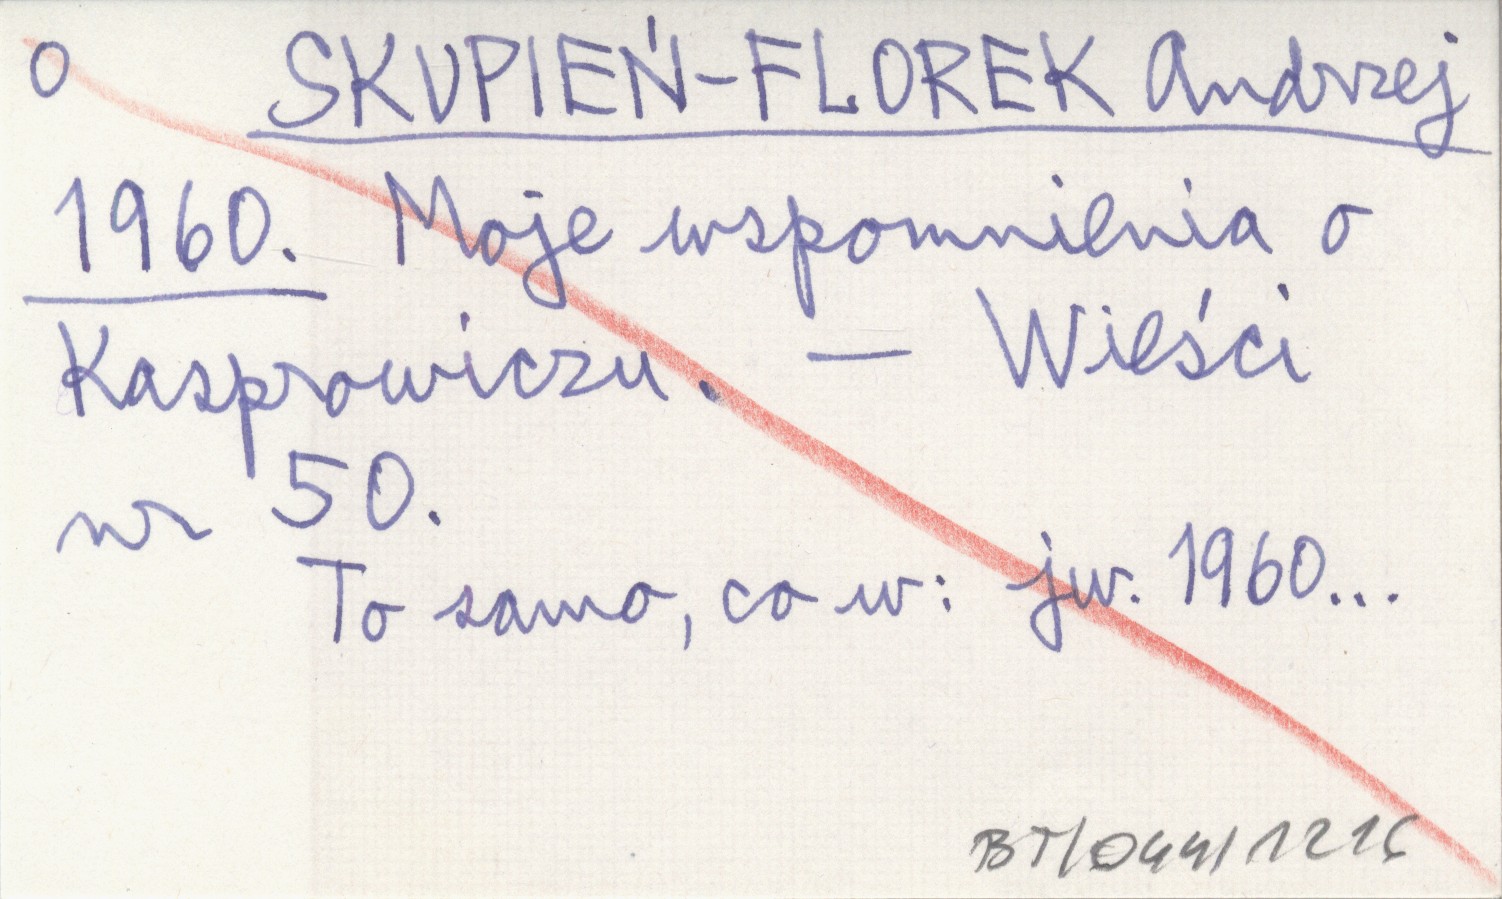 O SKUPIEŃ-FLOREK Andrzej
1960. Moje wspomnienia o
Kasprowiczu. — Wieści
nr 50.
To samo, co w: jw. 1960...
BT/044/1216